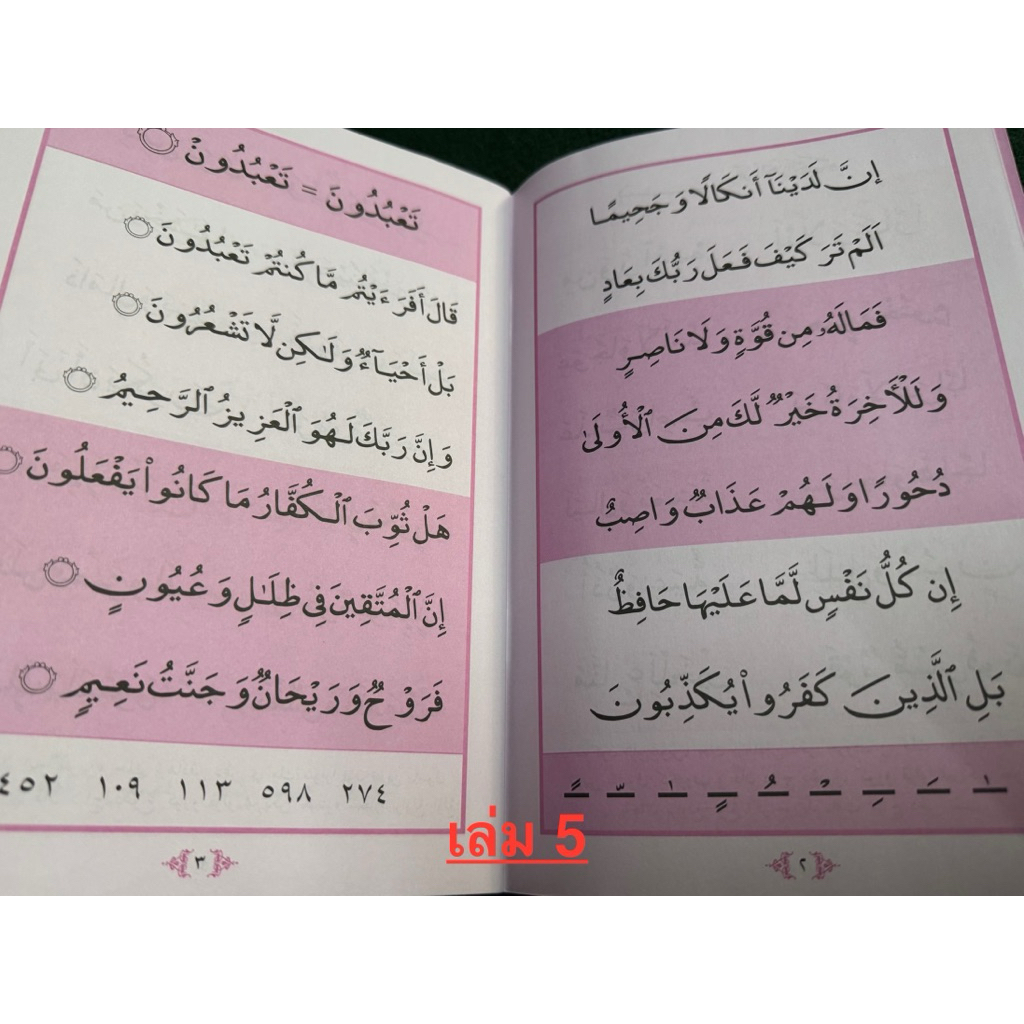 إِنَّ لَدَيْنَآ أَنكَالًا وَجَحِيمًا
اَلَمْ تَرَ كَيْفَ فَعَلَ رَبُّكَ بِعَادٍ
فَمَالَهُۥ مِن قُوَّةٍ وَلَا نَاصِرٍ
وَلَلْأَخِرَةُ خَيْرٌ لَّكَ مِنَ ٱلْأُولَىٰ
دُحُورًا وَلَهُمْ عَذَابٌ وَاصِبٌ
إِن كُلُّ نَفْسٍ لَّمَّا عَلَيْهَا حَافِظٌ
بَلِ ٱلَّذِينَ كَفَرُوا۟ يُكَذِّبُونَ
٢
تَعْبُدُونَ = تَعْبُدُونْ
قَالَ أَفَرَءَيْتُم مَّا كُنتُمْ تَعْبُدُونَ
بَلْ أَحْيَآءٌ وَلَٰكِن لَّا تَشْعُرُونَ
وَإِنَّ رَبَّكَ لَهُوَ ٱلْعَزِيزُ ٱلرَّحِيمُ
هَلْ ثُوِّبَ ٱلْكُفَّارُ مَا كَانُوا۟ يَفْعَلُونَ
إِنَّ ٱلْمُتَّقِينَ فِى ظِلَٰلٍ وَعُيُونٍ
فَرَوْحٌ وَرَيْحَانٌ وَجَنَّتُ نَعِيمٍ
٢٧٤ ٥٩٨ ١١٣ ١٠٩ ٤٥٢
٣
เล่ม 5